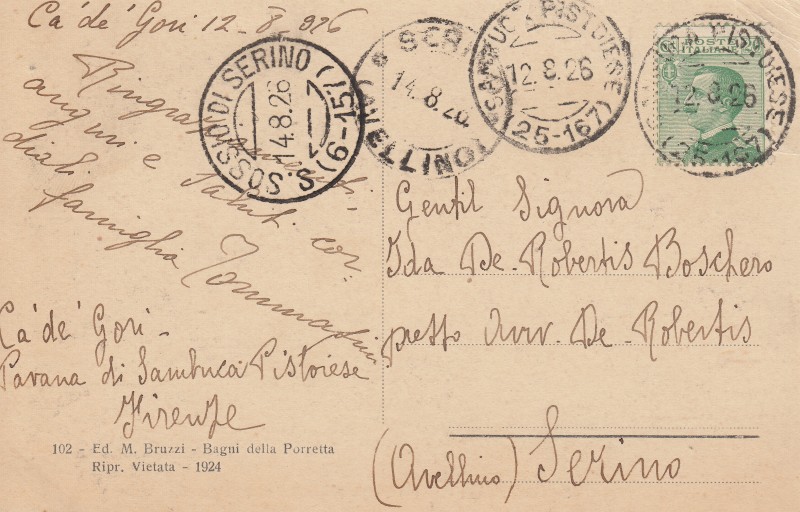 Ca' de' Gori 12-8-926
Ringraziamenti,
auguri e saluti cor-
diali
famiglia Tommasini
Ca' de' Gori -
Pavana di Sambuca Pistoiese
Firenze
102 - Ed. M. Bruzzi - Bagni della Porretta
Ripr. Vietata - 1924
S. SOSSIO DI SERINO (9-15)
14.8.26
SERI
14.8.26
(AVELLINO)
SAMBUCA PISTOIESE
12.8.26
(25-167)
POSTE
ITALIANE
PISTOIESE
12.8.26
(25-167)
Gentil Signora
Ida De-Robertis Boschero
presso Avv. De-Robertis
(Avellino) Serino